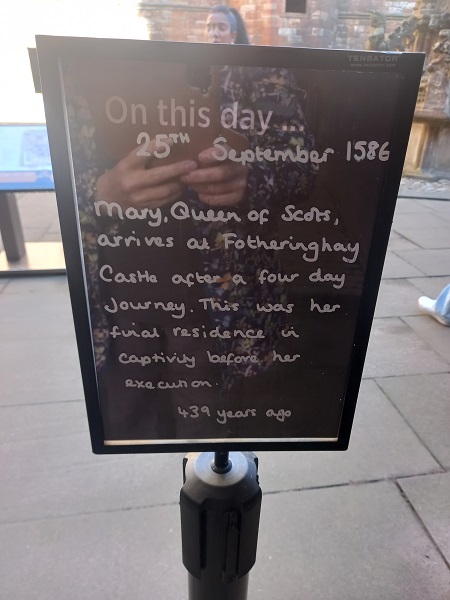 TENSATOR
On this day...
25TH September 1586
Mary, Queen of Scots,
arrives at Fotheringhay
Castle after a four day
Journey. This was her
final residence in
captivity before her
execution.
439 years ago